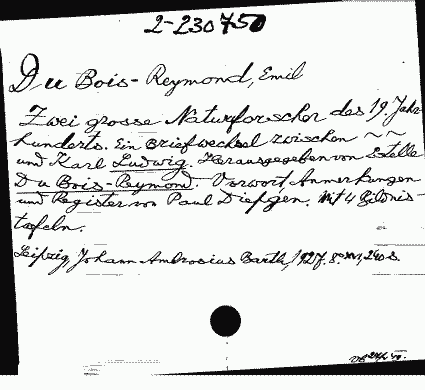 2-230750
Du Bois-Reymond, Emil
Zwei grosse Naturforscher des 19. Jahr-
hunderts. Ein Briefwechsel zwischen ~ ~
und Karl Ludwig. Herausgegeben von Estelle
Du Bois-Reymond. Vorwort, Anmerkungen
und Register von Paul Diepgen. Mit 4 Bildnis-
tafeln.
Leipzig, Johann Ambrosius Barth, 1927. 8° XVI, 240 s.